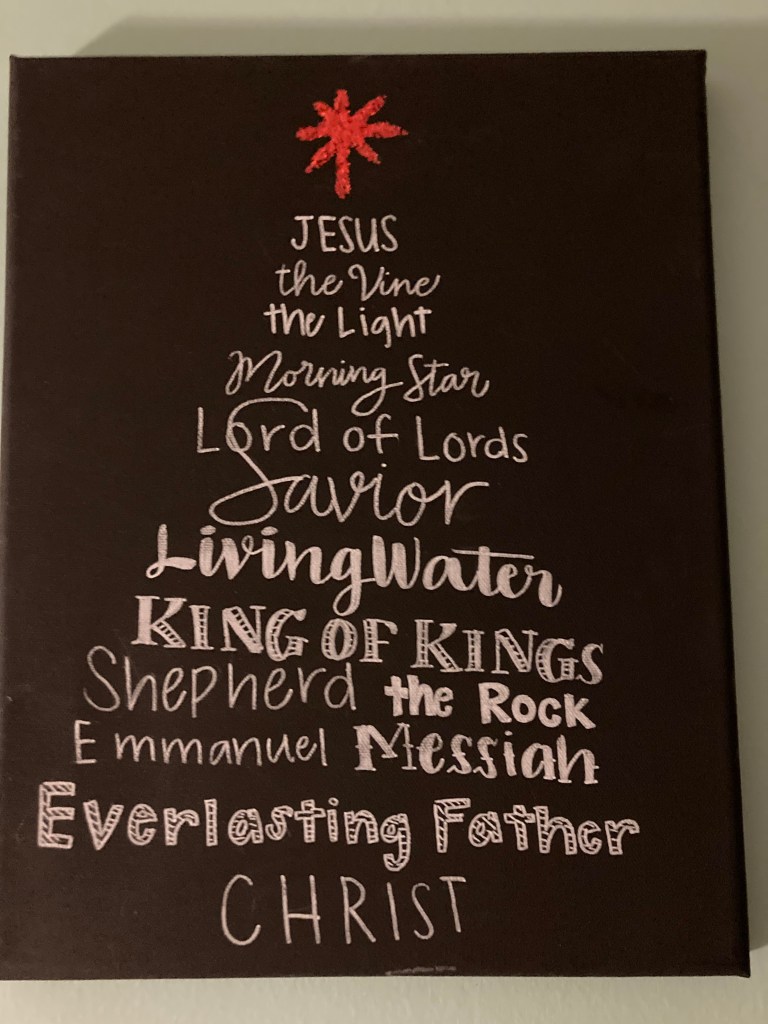 JESUS
the Vine
the Light
Morning Star
Lord of Lords
Savior
Living Water
KING OF KINGS
Shepherd the Rock
Emmanuel Messiah
Everlasting Father
CHRIST